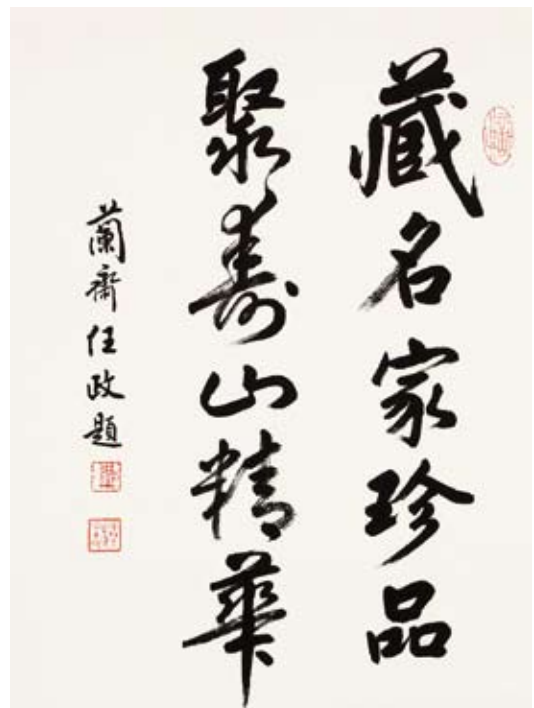 藏名家珍品
聚壽山精華
蘭齋任政題